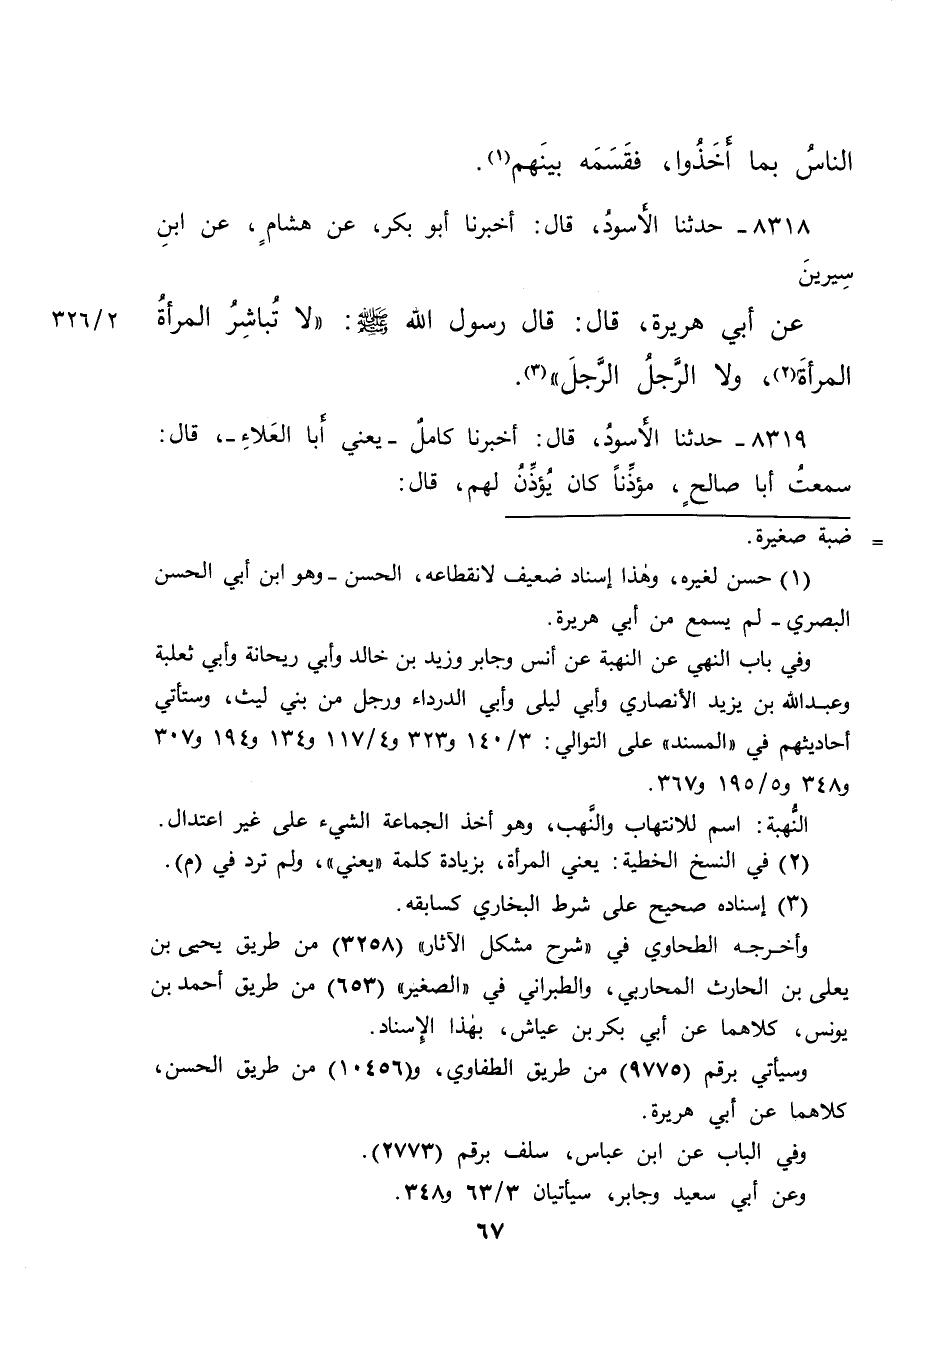 الناسُ بما أَخَذُوا، فقَسَمَه بينَهم(١).
٨٣١٨ـ حدثنا الأَسودُ، قال: أخبرنا أبو بكر، عن هشامٍ، عن ابنِ
سِيرينَ
عن أبي هريرة، قال: قال رسول الله ﷺ: «لا تُباشِرُ المرأةُ ٣٢٦/٢
المرأةَ(٢)، ولا الرَّجلُ الرَّجلَ»(٣).
٨٣١٩ـ حدثنا الأَسودُ، قال: أخبرنا كاملٌ ـيعني أَبا العَلاءِـ، قال:
سمعتُ أبا صالحٍ، مؤذِّناً كان يُؤذِّنُ لهم، قال:
= ضبة صغيرة.
(١) حسن لغيره، وهٰذا إسناد ضعيف لانقطاعه، الحسن ـوهو ابن أبي الحسن
البصري ـ لم يسمع من أبي هريرة.
وفي باب النهي عن النهبة عن أنس وجابر وزيد بن خالد وأبي ريحانة وأبي ثعلبة
وعبدالله بن يزيد الأنصاري وأبي ليلى وأبي الدرداء ورجل من بني ليث، وستأتي
أحاديثهم في «المسند» على التوالي: ١٤٠/٣ و٣٢٣ و١١٧/٤ و١٣٤ و١٩٤ و٣٠٧
و٣٤٨ و١٩٥/٥ و٣٦٧.
النُّهبة: اسم للانتهاب والنَّهب، وهو أخذ الجماعة الشيء على غير اعتدال.
(٢) في النسخ الخطية: يعني المرأة، بزيادة كلمة «يعني»، ولم ترد في (م).
(٣) إسناده صحيح على شرط البخاري كسابقه.
وأخرجه الطحاوي في «شرح مشكل الآثار» (٣٢٥٨) من طريق يحيى بن
يعلى بن الحارث المحاربي، والطبراني في «الصغير» (٦٥٣) من طريق أحمد بن
يونس، كلاهما عن أبي بكر بن عياش، بهٰذا الإِسناد.
وسيأتي برقم (٩٧٧٥) من طريق الطفاوي، و(١٠٤٥٦) من طريق الحسن،
كلاهما عن أبي هريرة.
وفي الباب عن ابن عباس، سلف برقم (٢٧٧٣).
وعن أبي سعيد وجابر، سيأتيان ٦٣/٣ و٣٤٨.
٦٧